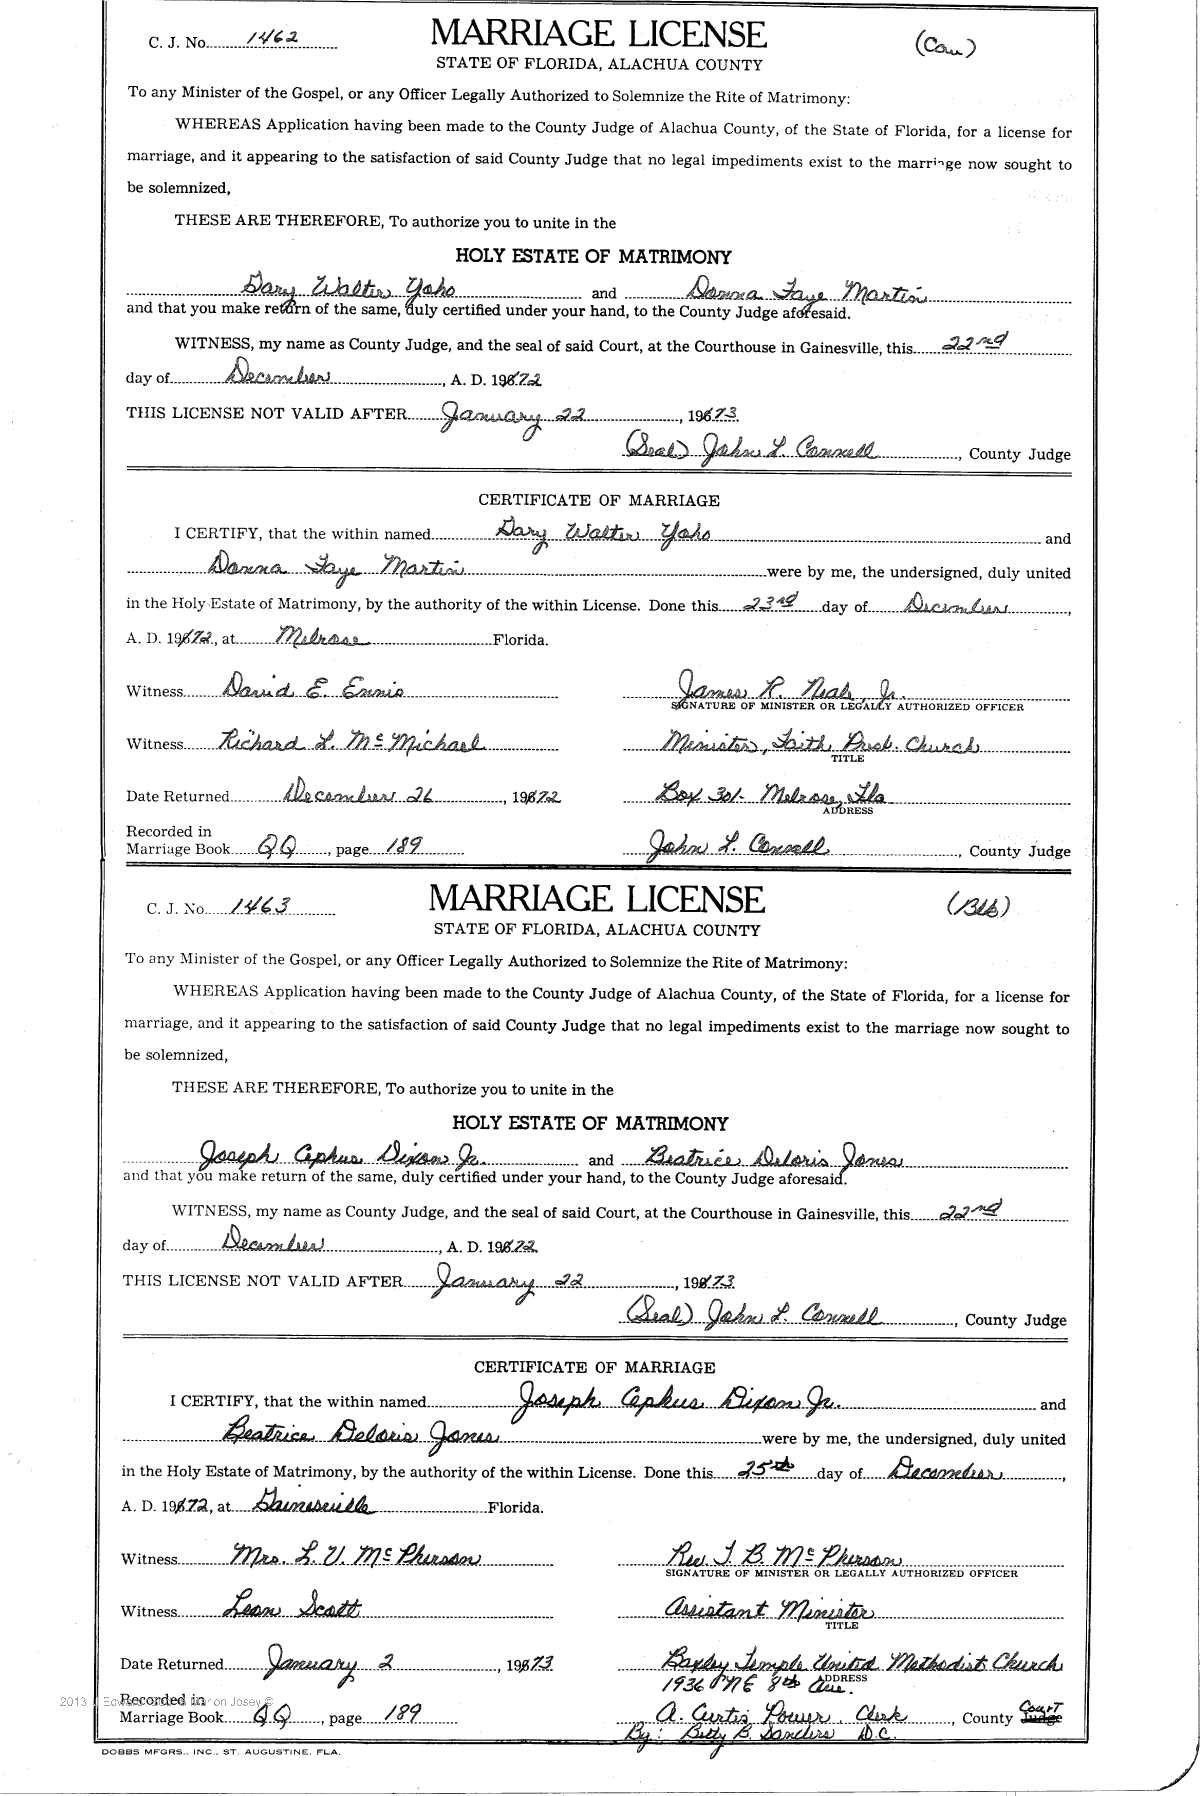 C. J. No. 1462
MARRIAGE LICENSE
(Cau)
STATE OF FLORIDA, ALACHUA COUNTY
To any Minister of the Gospel, or any Officer Legally Authorized to Solemnize the Rite of Matrimony:
WHEREAS Application having been made to the County Judge of Alachua County, of the State of Florida, for a license for
marriage, and it appearing to the satisfaction of said County Judge that no legal impediments exist to the marriage now sought to
be solemnized,
THESE ARE THEREFORE, To authorize you to unite in the
HOLY ESTATE OF MATRIMONY
Gary Walter Yoho and Donna Faye Martin
and that you make return of the same, duly certified under your hand, to the County Judge aforesaid.
WITNESS, my name as County Judge, and the seal of said Court, at the Courthouse in Gainesville, this 22nd
day of December, A. D. 1972
THIS LICENSE NOT VALID AFTER January 22, 1973
(Seal) John L. Connell, County Judge
CERTIFICATE OF MARRIAGE
I CERTIFY, that the within named Gary Walter Yoho and
Donna Faye Martin were by me, the undersigned, duly united
in the Holy Estate of Matrimony, by the authority of the within License. Done this 23rd day of December,
A. D. 1972, at Melrose Florida.
Witness David E. Ennis James R. Neal, Jr.
SIGNATURE OF MINISTER OR LEGALLY AUTHORIZED OFFICER
Witness Richard L. McMichael Minister, Faith Presb. Church
TITLE
Date Returned December 26, 1972 Box 301- Melrose, Fla
ADDRESS
Recorded in
Marriage Book QQ, page 189 John L. Connell, County Judge
C. J. No. 1463
MARRIAGE LICENSE
(Blk)
STATE OF FLORIDA, ALACHUA COUNTY
To any Minister of the Gospel, or any Officer Legally Authorized to Solemnize the Rite of Matrimony:
WHEREAS Application having been made to the County Judge of Alachua County, of the State of Florida, for a license for
marriage, and it appearing to the satisfaction of said County Judge that no legal impediments exist to the marriage now sought to
be solemnized,
THESE ARE THEREFORE, To authorize you to unite in the
HOLY ESTATE OF MATRIMONY
Joseph Cephus Dixon Jr. and Beatrice Deloris Jones
and that you make return of the same, duly certified under your hand, to the County Judge aforesaid.
WITNESS, my name as County Judge, and the seal of said Court, at the Courthouse in Gainesville, this 22nd
day of December, A. D. 1972
THIS LICENSE NOT VALID AFTER January 22, 1973
(Seal) John L. Connell, County Judge
CERTIFICATE OF MARRIAGE
I CERTIFY, that the within named Joseph Cephus Dixon Jr. and
Beatrice Deloris Jones were by me, the undersigned, duly united
in the Holy Estate of Matrimony, by the authority of the within License. Done this 25th day of December,
A. D. 1972, at Gainesville Florida.
Witness Mrs. L. V. McPherson Rev. T. B. McPherson
SIGNATURE OF MINISTER OR LEGALLY AUTHORIZED OFFICER
Witness Leon Scott Assistant Minister
TITLE
Date Returned January 2, 1973 Baxley Temple United Methodist Church
1936 NE 8th Ave.
ADDRESS
Recorded in
Marriage Book QQ, page 189 A. Curtis Power, Clerk, County Court Judge
By: Betty B. Sanders D.C.
DOBBS MFGRS., INC., ST. AUGUSTINE, FLA.